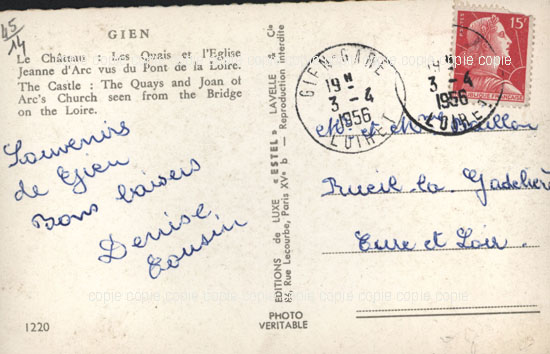 45/14
GIEN
Le Château : Les Quais et l'Eglise
Jeanne d'Arc vus du Pont de la Loire.
The Castle : The Quays and Joan of
Arc's Church seen from the Bridge
on the Loire.
Souvenirs
de Gien
Bons baisers
Denise
Cousin
1220
EDITIONS de LUXE « ESTEL » LAVELLE & Cie
84, Rue Lecourbe, Paris XVe b — Reproduction interdite
PHOTO
VERITABLE
GIEN-GARE
19 H
3 - 4
1956
LOIRET
3 - 4
1956
LOIRET
15F
REPUBLIQUE FRANÇAISE
Mr et Mme
Rueil la Gadelière
Eure et Loir
copie copie copie copie copie copie copie copie copie copie
copie copie copie copie copie copie copie copie copie copie